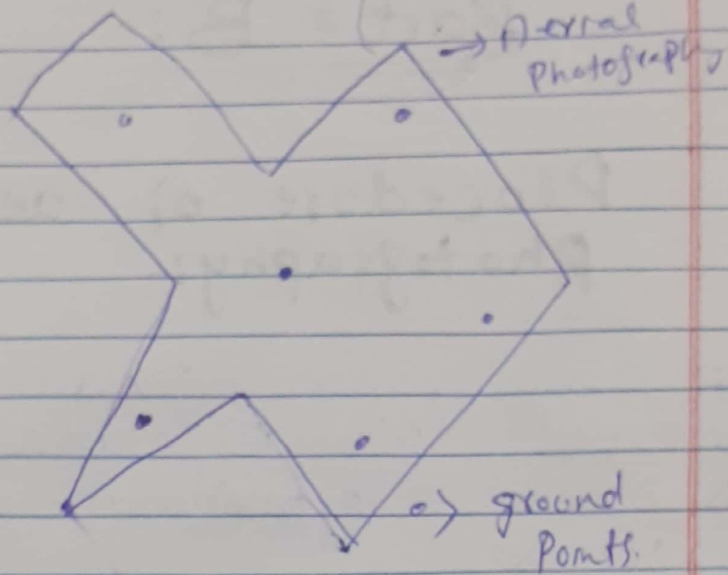 Aerial
Photography
ground
Points.